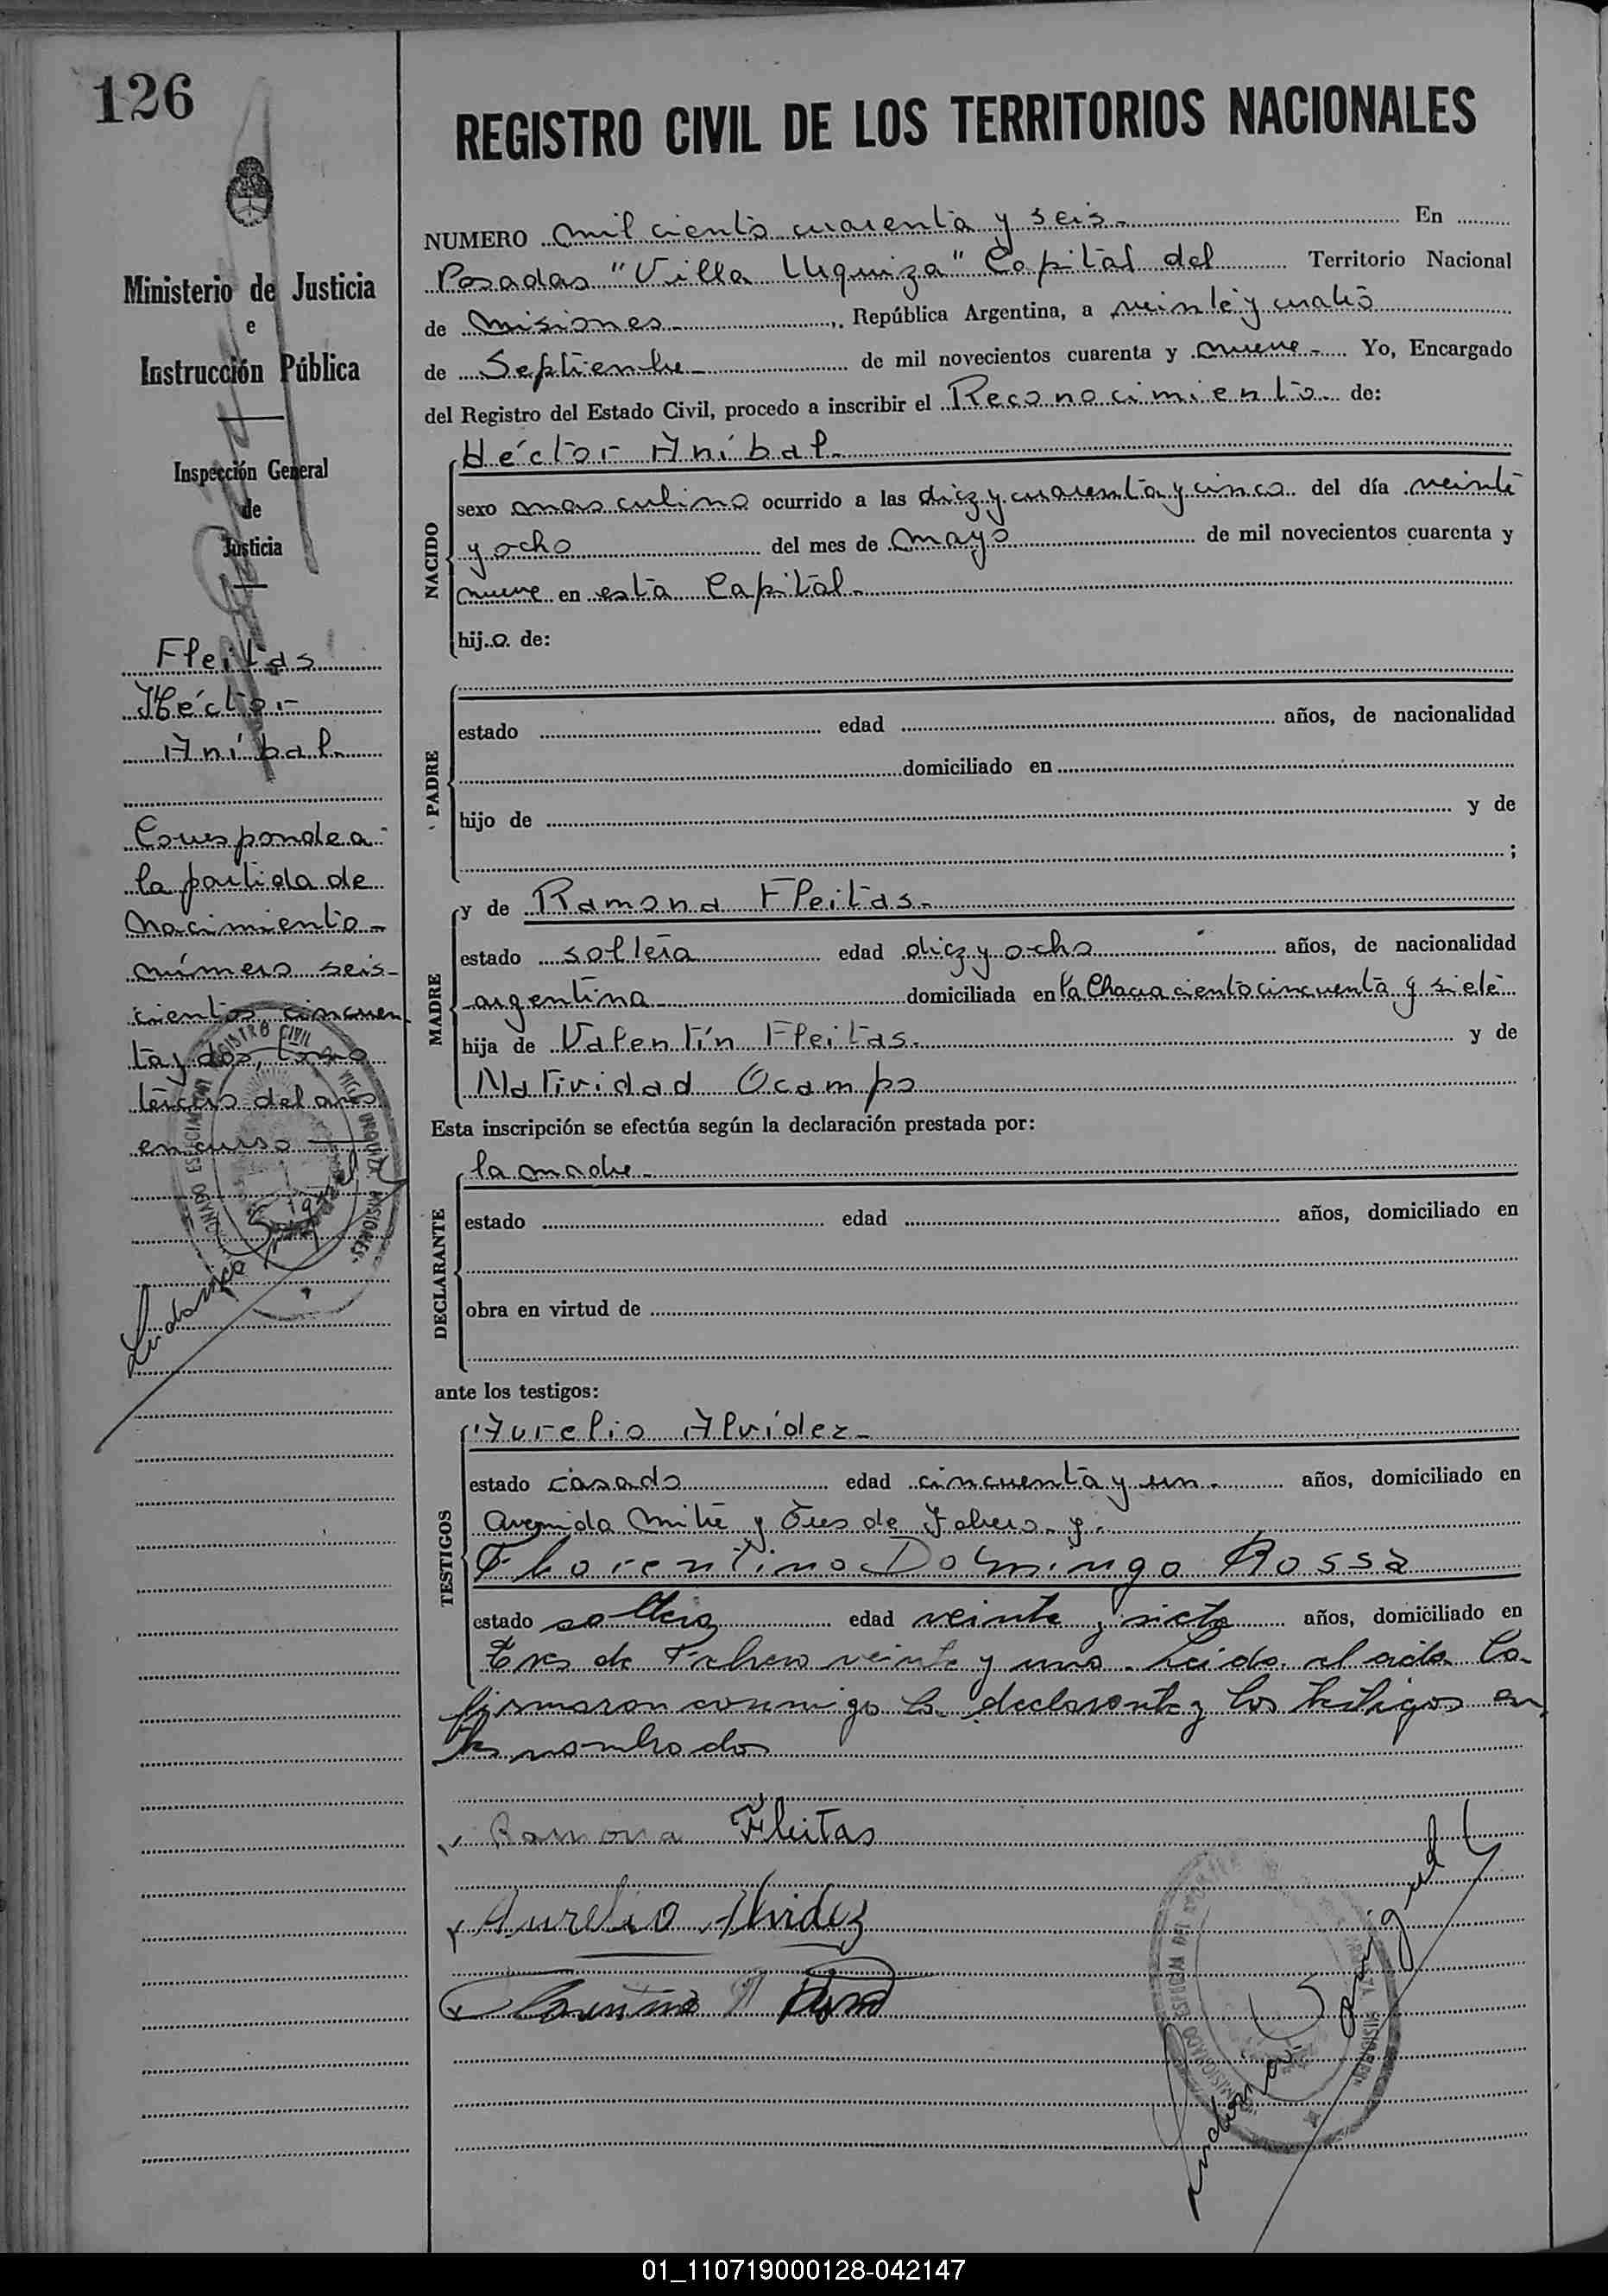 126
REGISTRO CIVIL DE LOS TERRITORIOS NACIONALES
Ministerio de Justicia
e
Instrucción Pública
Inspección General
de
Justicia
Fleitas
Héctor
Aníbal
Corresponde a
la partida de
Nacimiento
número seis-
cientos cincuen
ta y dos, tomo
tercero del año
en curso
NUMERO mil ciento cuarenta y seis En
Posadas "Villa Urquiza" Capital del Territorio Nacional
de Misiones República Argentina, a veinte y cuatro
de Septiembre de mil novecientos cuarenta y nueve Yo, Encargado
del Registro del Estado Civil, procedo a inscribir el Reconocimiento de:
Héctor Aníbal
NACIDO
sexo masculino ocurrido a las diez y cuarenta y cinco del día veinte
y ocho del mes de mayo de mil novecientos cuarenta y
nueve en esta Capital
hijo de:
PADRE
estado edad años, de nacionalidad
domiciliado en
hijo de y de
;
MADRE
y de Ramona Fleitas
estado soltera edad diez y ocho años, de nacionalidad
argentina domiciliada en la Chacra ciento cincuenta y siete
hija de Valentín Fleitas y de
Natividad Ocampo
Esta inscripción se efectúa según la declaración prestada por:
la madre
DECLARANTE
estado edad años, domiciliado en
obra en virtud de
ante los testigos:
TESTIGOS
Aurelio Alvídez
estado casado edad cincuenta y un años, domiciliado en
Avenida Mitre y Tres de Febrero y
Florentino Domingo Rossa
estado soltero edad veinte y siete años, domiciliado en
tres de Febrero veinte y uno. Leida el acta la
firmaron conmigo la declarante y los testigos an
tes nombrados
Ramona Fleitas
Aurelio Alvidez
Florentino D
01_110719000128-042147